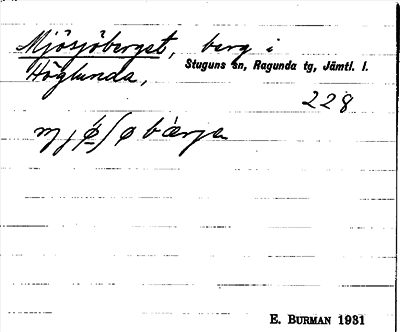 Mjösjöberget, berg i
Stuguns sn, Ragunda tg, Jämtl. l.
Höglunda,
228
mjø̈ʃøbærja
E. BURMAN 1931